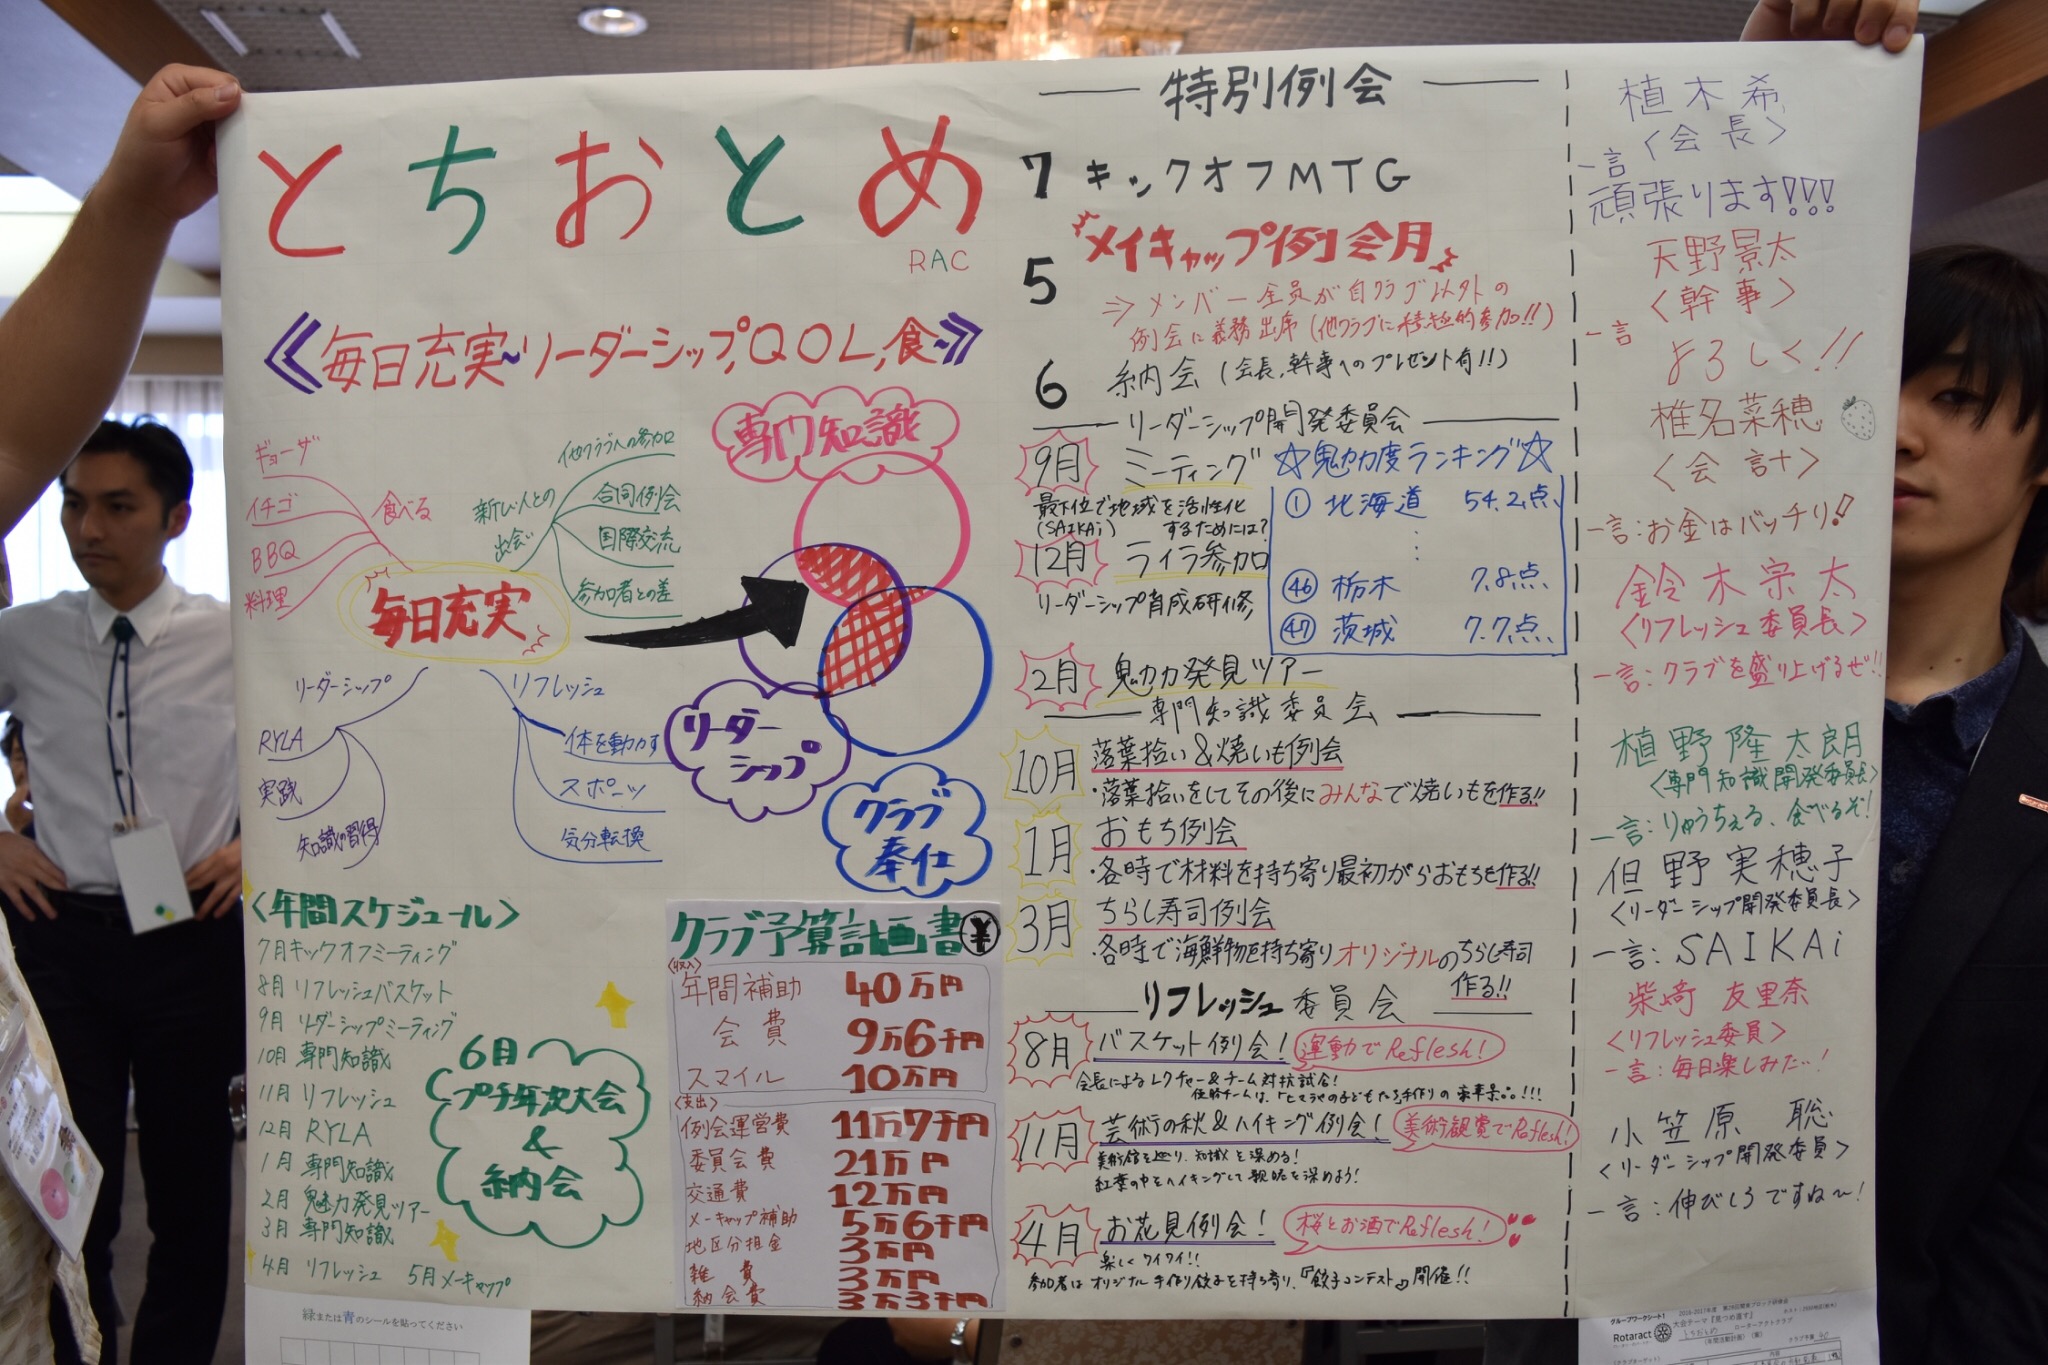 とちおとめ
RAC
≪毎日充実~リーダーシップ,QOL,食~≫
ギョーザ
イチゴ
BBQ
料理
食べる
新しい人との
出会い
他クラブへの参加
合同例会
国際交流
参加者との差
毎日充実
リーダーシップ
RYLA
実践
知識の習得
リフレッシュ
体を動かす
スポーツ
気分転換
専門知識
リーダー
シップ
クラブ
奉仕
<年間スケジュール>
7月キックオフミーティング
8月 リフレッシュバスケット
9月 リーダーシップミーティング
10月 専門知識
11月 リフレッシュ
12月 RYLA
1月 専門知識
2月 魅力発見ツアー
3月 専門知識
4月 リフレッシュ 5月メーキャップ
6月
プチ年次大会
&
納会
クラブ予算計画書¥
<収入>
年間補助 40万円
会費 9万6千円
スマイル 10万円
<支出>
例会運営費 11万7千円
委員会費 21万円
交通費 12万円
メーキャップ補助 5万6千円
地区分担金 3万円
雑費 3万円
納会費 3万3千円
緑または青のシールを貼ってください
特別例会
7 キックオフMTG
5 メイキャップ例会月
⇒メンバー全員が自クラブ以外の
例会に義務出席(他クラブに積極的参加!!)
6 納会(会長,幹事へのプレゼント有!!)
リーダーシップ開発委員会
9月 ミーティング
最下位で地域を活性化
(SAIKAi) するためには?
12月 ライラ参加
リーダーシップ育成研修
☆魅力度ランキング☆
① 北海道 54.2点
㊻ 栃木 7.8点
㊼ 茨城 7.7点
2月 魅力発見ツアー
専門知識委員会
10月 落葉拾い&焼いも例会
・落葉拾いをしてその後にみんなで焼いもを作る!!
1月 おもち例会
・各時で材料を持ち寄り最初からおもちを作る!!
3月 ちらし寿司例会
・各時で海鮮物を持ち寄りオリジナルのちらし寿司
作る!!
リフレッシュ委員会
8月 バスケット例会! 運動でReflesh!
会長によるレクチャー&チーム対抗試合!
11月 芸術の秋&ハイキング例会! 美術観覧でReflesh!
美術館を巡り、知識を深める!
紅葉の中をハイキングして親睦を深めよう!
4月 お花見例会! 桜とお酒でReflesh!
楽しくワイワイ!!
参加者はオリジナル手作り餃子を持ち寄り、『餃子コンテスト』開催!!
植木希
<会長>
一言
頑張ります!!!
天野景太
<幹事>
一言
よろしく!!
椎名菜穂
<会計>
一言:お金はバッチリ!
鈴木宗太
<リフレッシュ委員長>
一言:クラブを盛り上げるぜ!!
植野隆太朗
<専門知識開発委員長>
一言:りゅうちぇる、食べるぞ!
但野実穂子
<リーダーシップ開発委員長>
一言:SAIKAi
柴崎友里奈
<リフレッシュ委員>
一言:毎日楽しみた〜!
小笠原 聡
<リーダーシップ開発委員>
一言:伸びしろですね〜!
グループワークシート1
Rotaract
大会テーマ『見つめ直す』
とちおとめ ローターアクトクラブ